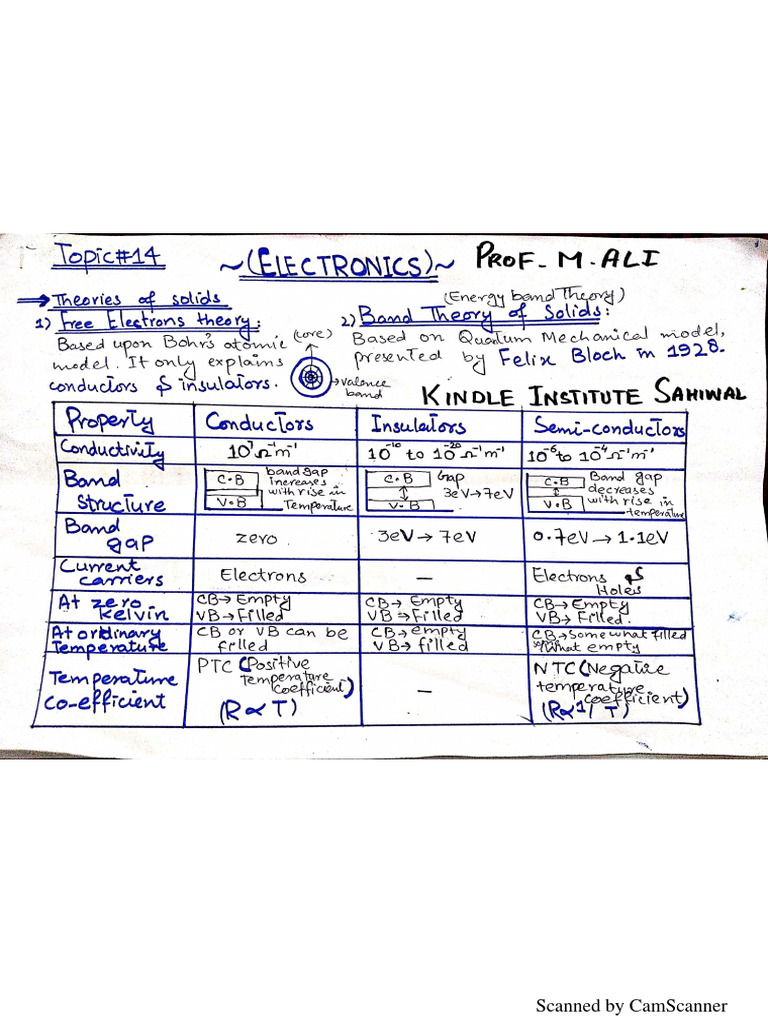 Topic#14
~(ELECTRONICS)~ PROF. M. ALI
⇒ Theories of solids
(Energy band Theory)
1) Free Electrons theory:
2) Band Theory of Solids:
Based upon Bohr's atomic
model. It only explains
conductors & insulators.
(Core)
valence
band
Based on Quantum Mechanical model,
presented by Felix Bloch in 1928.
KINDLE INSTITUTE SAHIWAL
Property Conductors Insulators Semi-conductors
Conductivity 10⁷Ω⁻¹m⁻¹ 10⁻¹⁰ to 10⁻²⁰Ω⁻¹m⁻¹ 10⁻⁶to 10⁻⁴Ω⁻¹m⁻¹
Band
Structure
C.B
V.B
band gap
increases
with rise in
Temperature
C.B
V.B
Gap
3eV→7eV
C.B
V.B
Band gap
decreases
with rise in
temperature
Band
gap
zero
3eV→7eV
0.7eV→1.1eV
Current
carriers
Electrons
–
Electrons &
Holes
At zero
kelvin
CB→Empty
VB→Filled
CB→Empty
VB→Filled
CB→Empty
VB→Filled.
At ordinary
Temperature
CB or VB can be
filled
CB→empty
VB→filled
CB→Some what filled
VB→some what empty
Temperature
co-efficient
PTC (Positive
temperature
coefficient)
(R∝T)
–
NTC (Negative
temperature
coefficient)
(R∝1/T)
Scanned by CamScanner